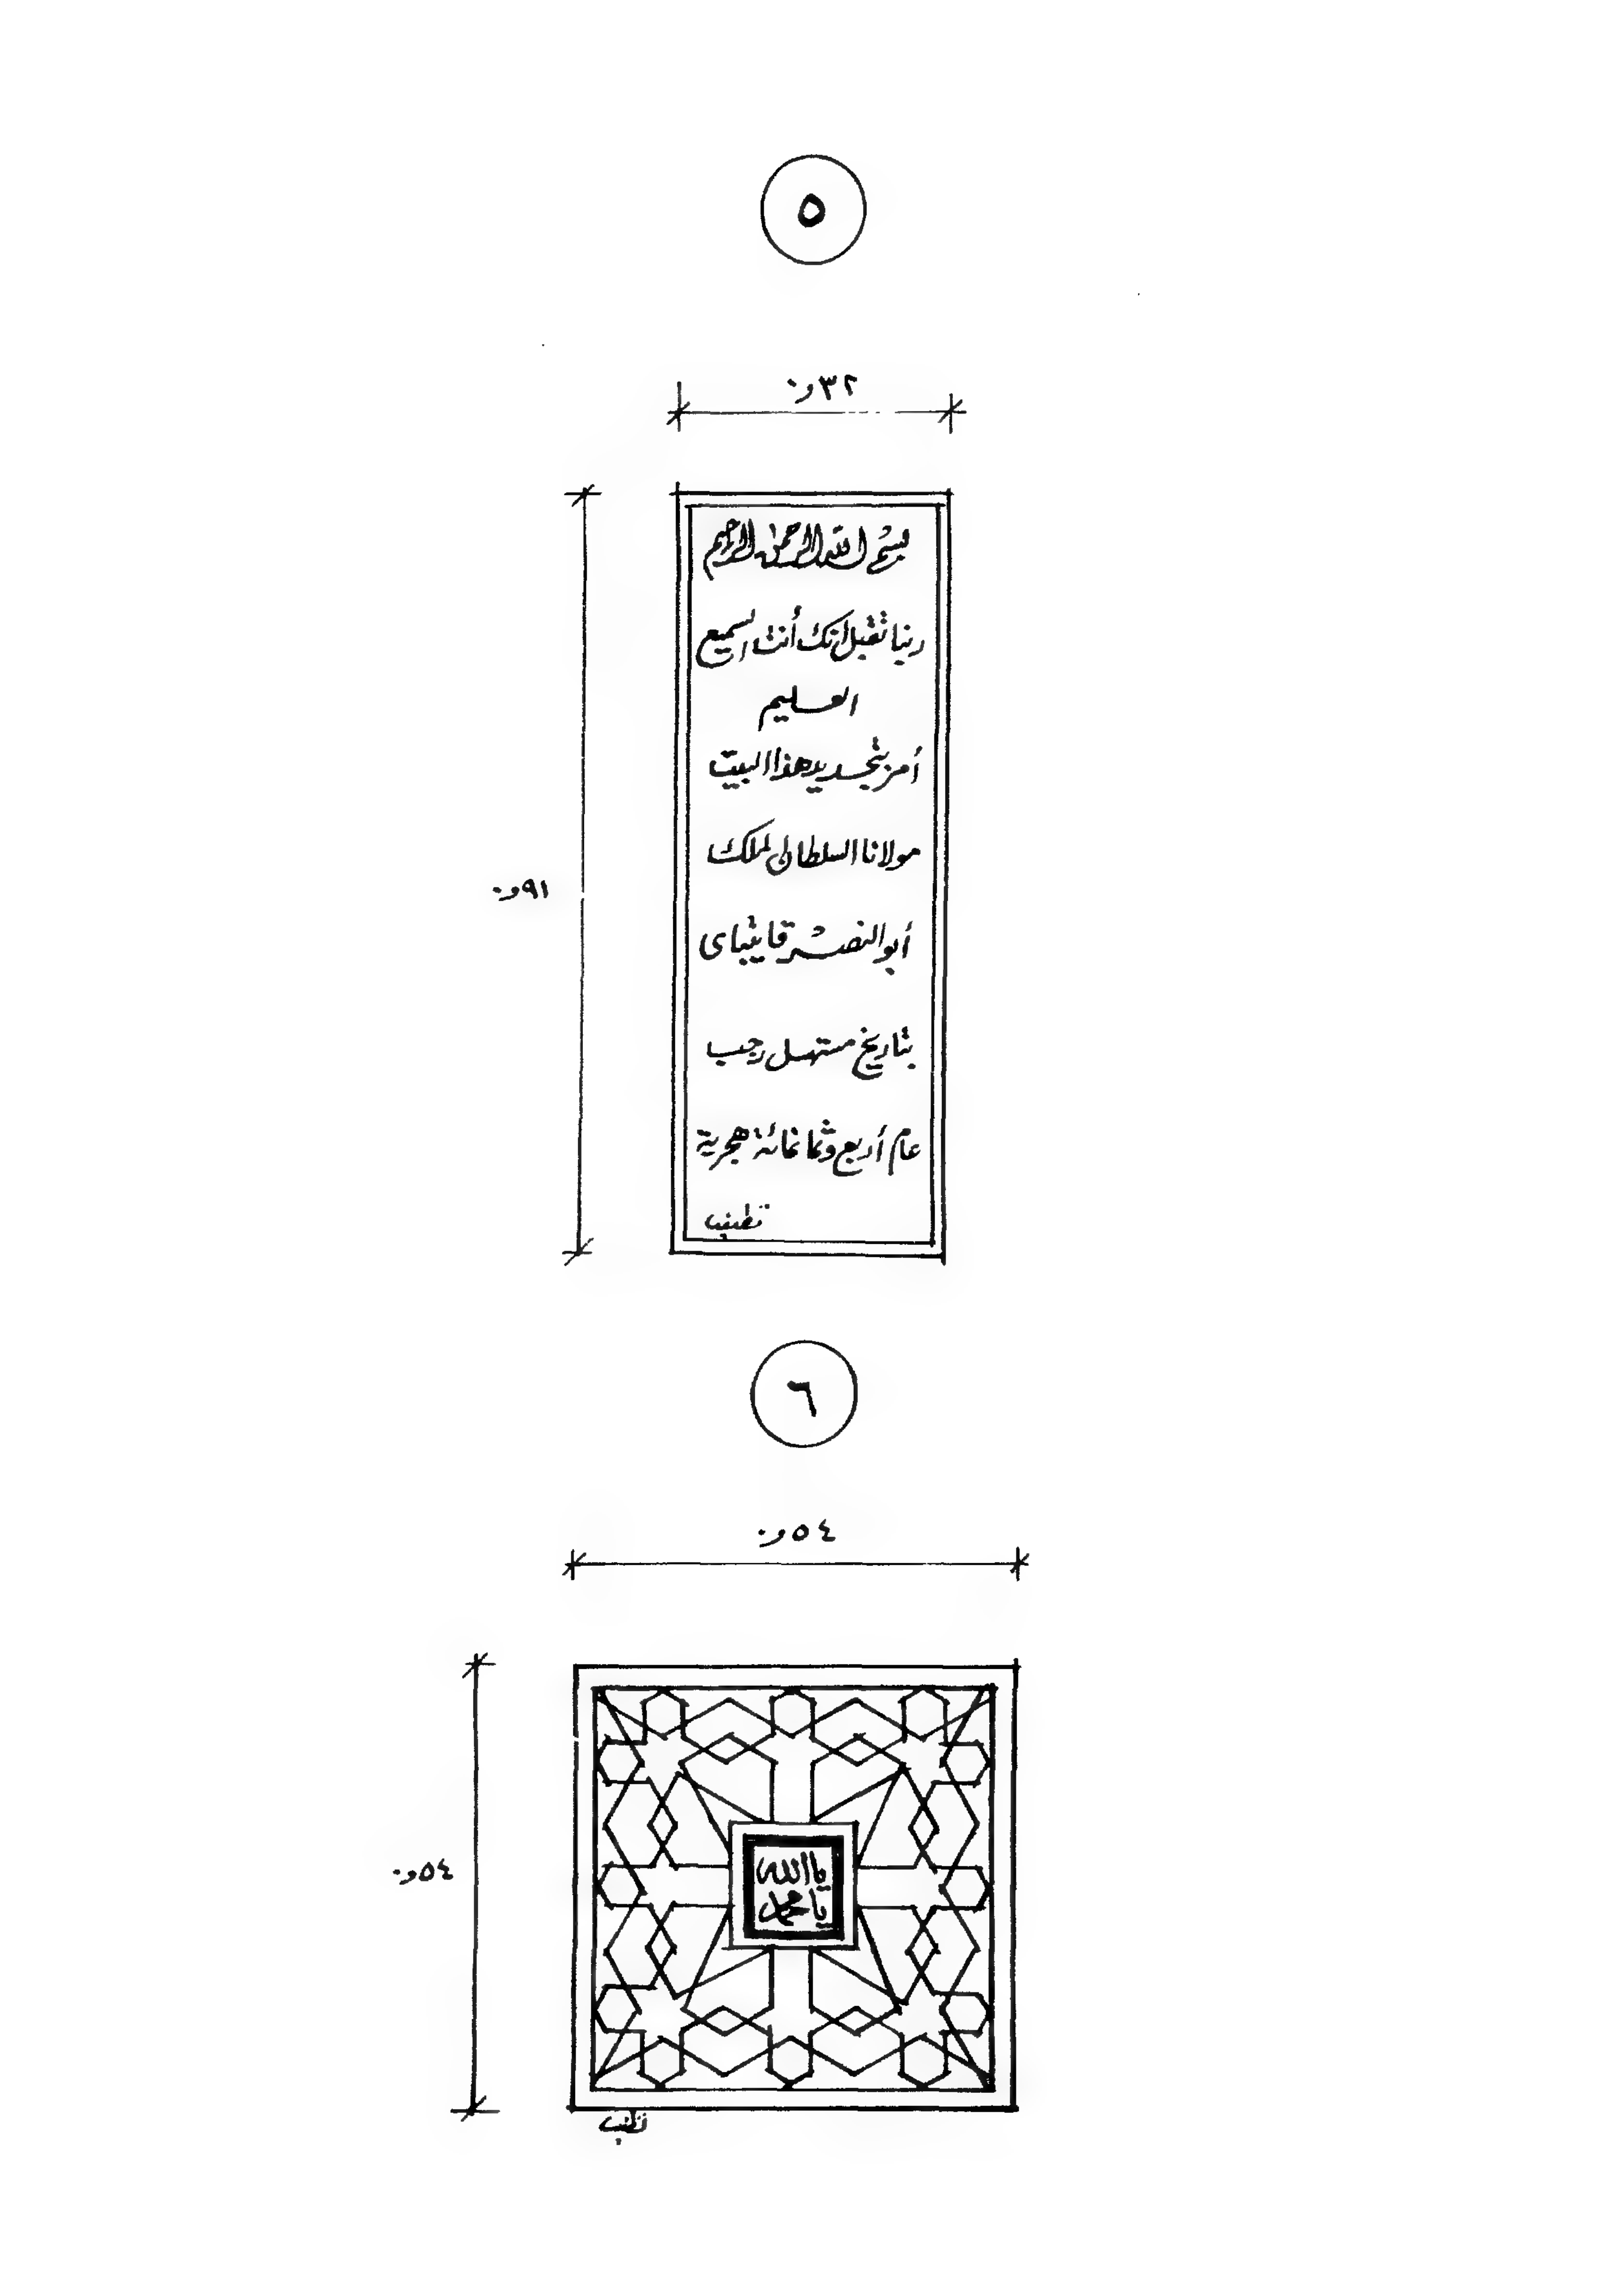 ٥
٣٢و٠
بسم الله الرحمن الرحيم
ربنا تقبل إنك أنت السميع
العليم
أمر بتجديد هذا البيت
٩١و٠
مولانا السلطان لملك
أبو النصر قايتباى
بتاريخ مستهل رجب
عام أربع وثمانمائة هجرية
٦
٥٤و٠
٥٤و٠
يا الله
يا محمد